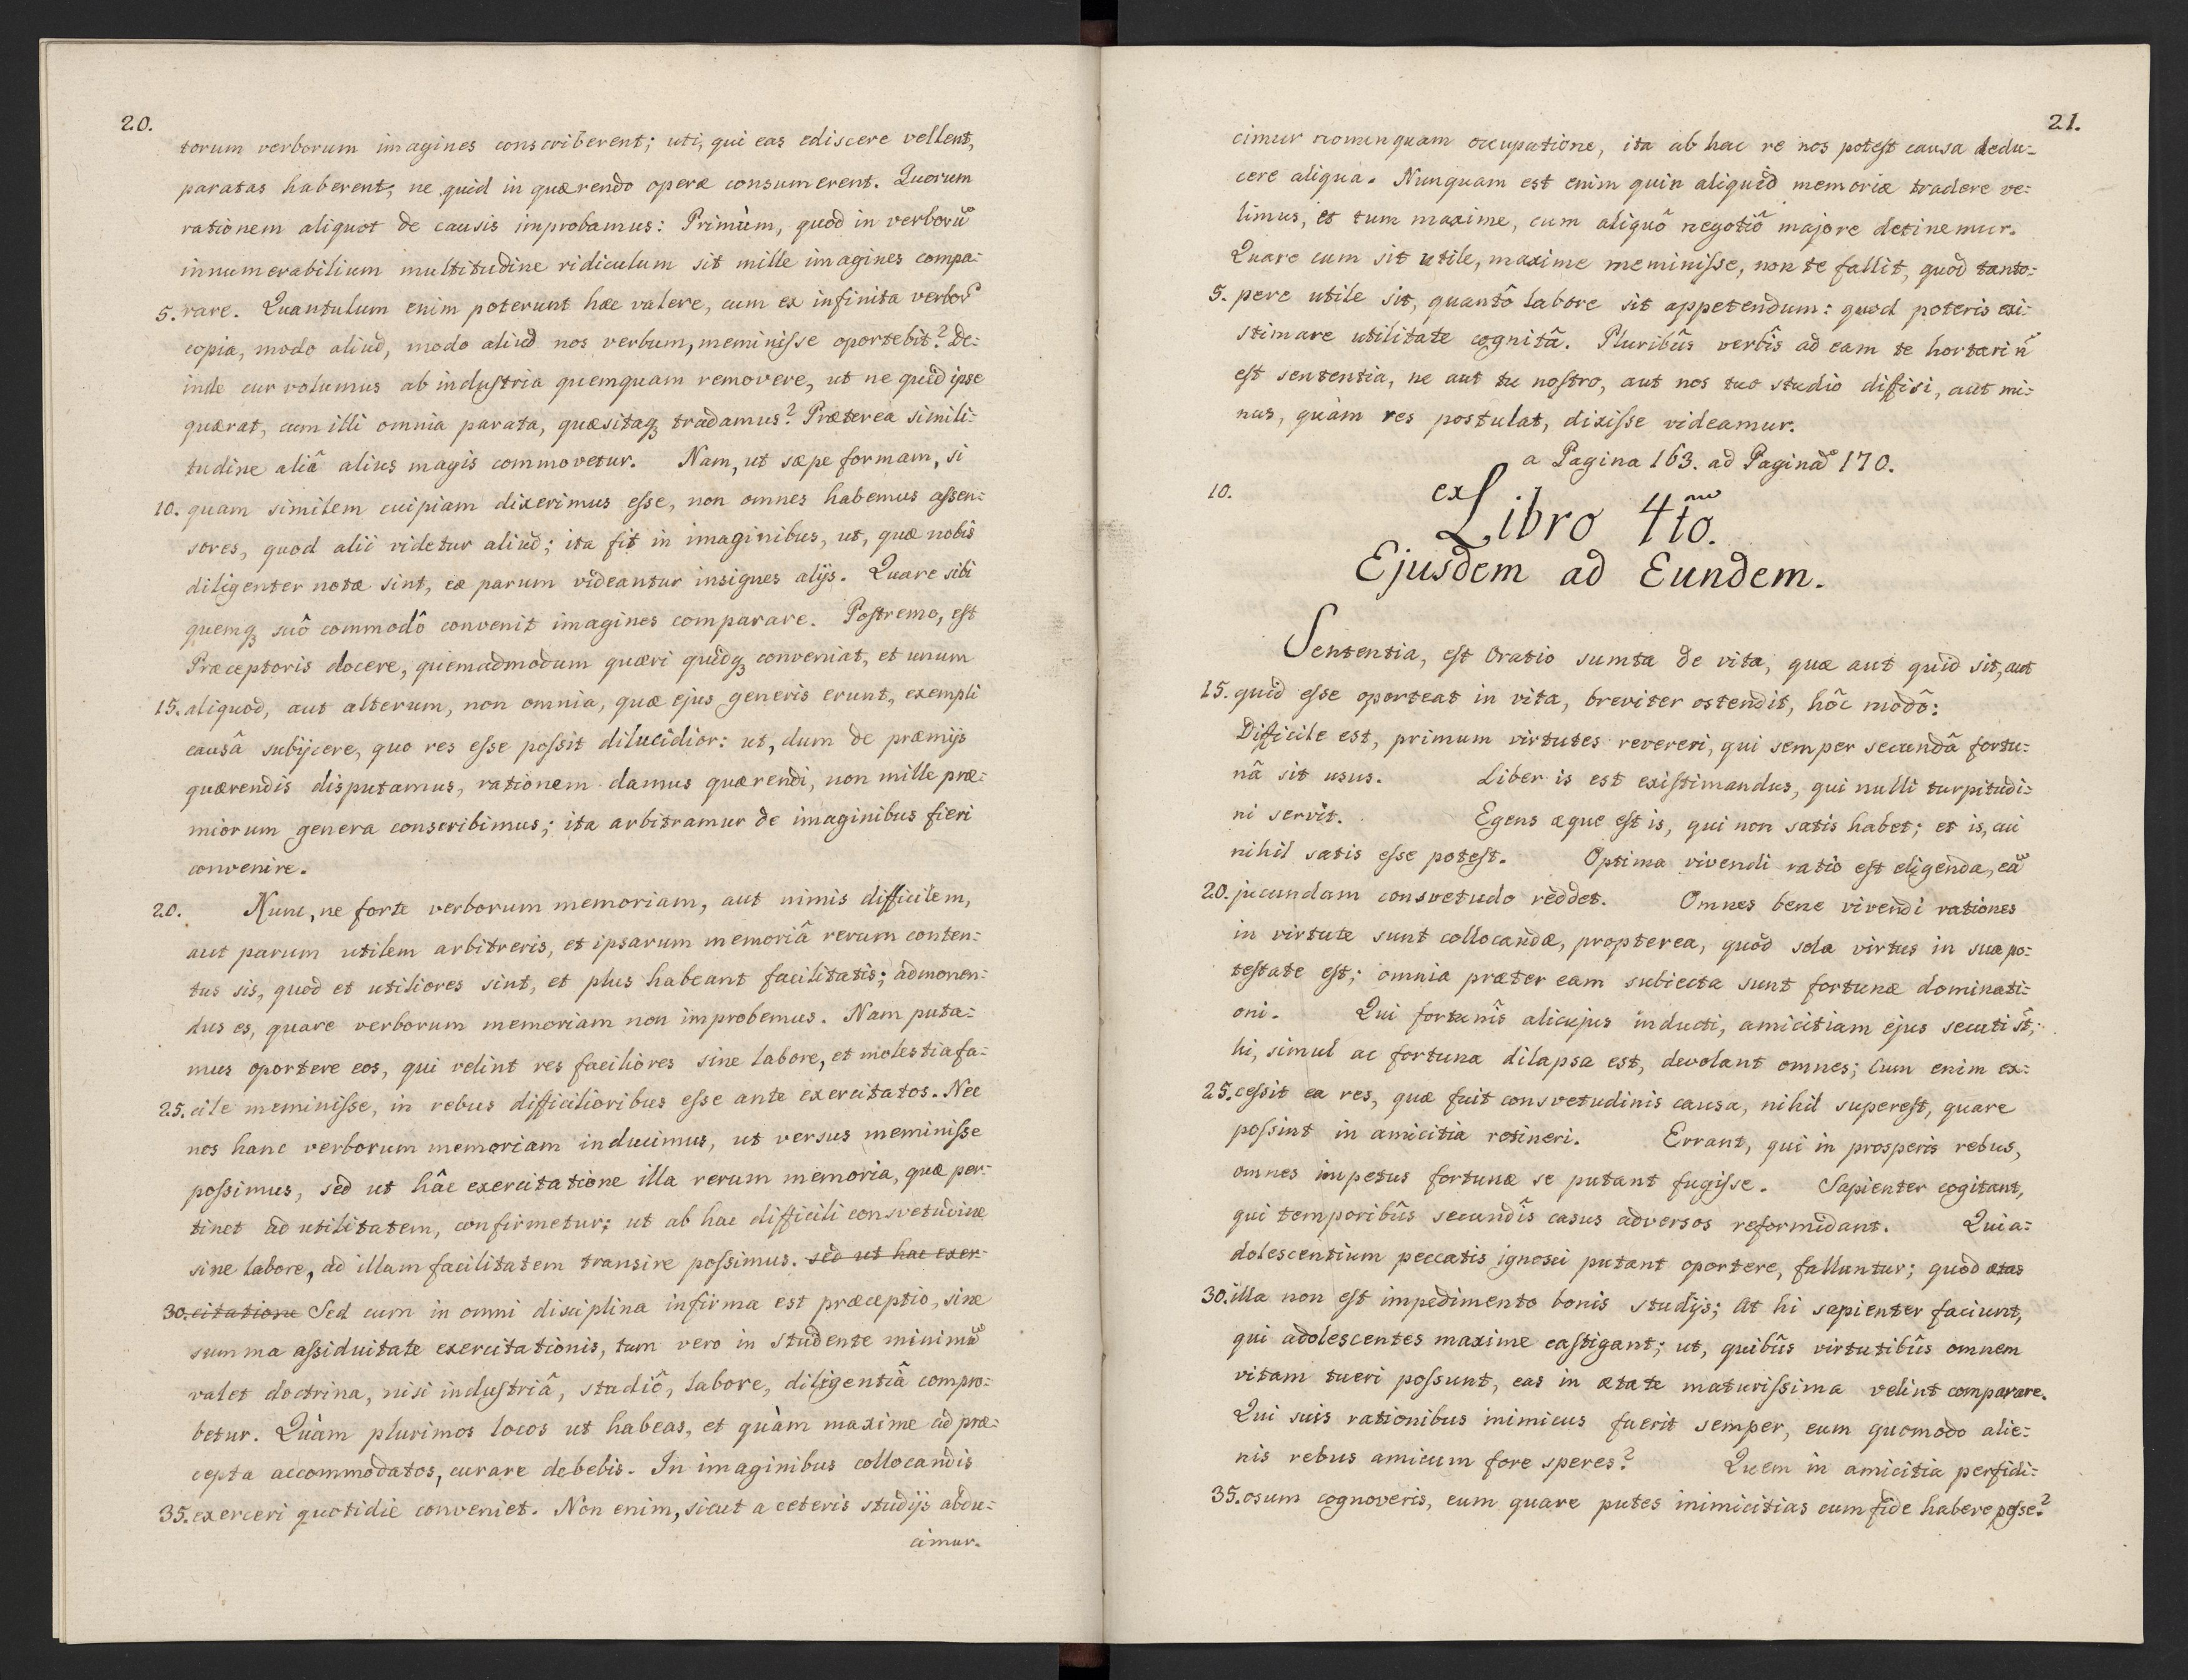 20.
torum verborum imagines conscriberent; uti, qui eas ediscere vellent,
paratas haberent; ne quid in quærendo operæ consumerent. Quorum
rationem aliquot de causis improbamus: Primùm, quod in verborũ
innumerabilium multitudine ridiculum sit mille imagines compa:
5. rare. Quantulum enim poterunt hæc valere, cum ex infinita verboꝝ
copia, modo aliud, modo aliud nos verbum, meminiſse oportebit? De:
inde cur volumus ab induſtria quemquam removere, ut ne quid ipse
quærat, cum illi omnia parata, quæsitaqꝫ tradamus? Præterea simili:
tudine aliâ alius magis commovetur. Nam, ut sæpe formam, si
10. quam similem cuipiam dixerimus eſse, non omnes habemus aſsen:
sores, quod alii videtur aliud; ita fit in imaginibus, ut, quæ nobis
diligenter notæ sint, eæ parum videantur insignes alijs. Quare sibi
quemqꝫ suô commodô convenit imagines comparare. Poſtremo, eſt
Præceptoris docere, quemadmodum quæri quidqꝫ conveniat, et unum
15. aliquod, aut alterum, non omnia, quæ ejus generis erunt, exempli
causâ subijcere, quo res eſse poſsit dilucidior: ut, dum de præmijs
quærendis disputamus, rationem damus quærendi, non mille præ:
miorum genera conscribimus; ita arbitramur de imaginibus fieri
convenire.
20. Nunc, ne forte verborum memoriam, aut nimis difficilem,
aut parum utilem arbitreris, et ipsarum memoriâ rerum conten:
tus sis, quod et utiliores sint, et plus habeant facilitatis; admonen:
dus es, quare verborum memoriam non improbemus. Nam puta:
mus oportere eos, qui velint res faciliores sine labore, et molestia fa:
25. cile meminiſse, in rebus difficilioribus eſse ante exercitatos. Nec
nos hanc verborum memoriam inducimus, ut versus meminiſse
poſsimus, sed ut hâc exercitatione illa rerum memoria, quæ per:
tinet ad utilitatem, confirmetur; ut ab hac difficili consvetudine
sine labore, ad illam facilitatem transire poſsimus. sed ut hac exer-
30. citatione Sed cum in omni disciplina infirma est præceptio, sine
summa aſsiduitate exercitationis, tum vero in studente minimũ
valet doctrina, nisi induſtriâ, studiô, labore, diligentiâ compro:
betur. Quàm plurimos locos ut habeas, et quàm maxime ad præ:
cepta accommodatos, curare debebis. In imaginibus collocandis
35. exerceri quotidie conveniet. Non enim, sicut a ceteris studijs abdu:
cimur.
21.
cimur nonunquam occupatione, ita ab hac re nos poteſt causa dedu:
cere aliqua. Nunquam est enim quin aliquid memoriæ tradere ve:
limus, et tum maxime, cum aliquô negotiô majore detinemur.
Quare cum sit utile, maxime meminiſse, non te fallit, quod tanto:
5. pere utile sit, quantô labore sit appetendum: quod poteris exi:
stimare utilitate cognitâ. Pluribûs verbîs ad eam te hortari ñ
eſt sententia, ne aut tu noſtro, aut nos tuo studio diffisi, aut mi:
nus, quàm res postulat, dixiſse videamur.
a Pagina 163. ad Paginã 170.
10. ex Libro 4to.
Ejusdem ad Eundem.
Sententia, eſt Oratio sumta de vita, quæ aut quid sit, aut
15. quid eſse oporteat in vita, breviter ostendit, hôc modô:
Difficile est, primum virtutes revereri, qui semper secundâ fortu:
nâ sit usus. Liber is est exiſtimandus, qui nulli turpitudi:
ni servit. Egens æque eſt is, qui non satis habet; et is, cui
nihil satis eſse poteſt. Optima vivendi ratio eſt eligenda, eã
20. jucundam consvetudo reddet. Omnes bene vivendi rationes
in virtute sunt collocandæ, propterea, quod sola virtus in sua po:
teſtate eſt; omnia præter eam subiecta sunt fortunæ dominati:
oni. Qui fortunîs alicujus inducti, amicitiam ejus secuti s̃t;
hi, simul ac fortuna dilapsa est, devolant omnes; Cum enim ex:
25. ceſsit ea res, quæ fuit consvetudinis causa, nihil supereſt, quare
poſsint in amicitia retineri. Errant, qui in prosperis rebus,
omnes impetus fortunæ se putant fugiſse. Sapienter cogitant,
qui temporibûs secundîs casus adversos reformidant. Qui a:
dolescentium peccatis ignosci putant oportere, falluntur; quod ætas
30. illa non eſt impedimento bonis studijs; At hi sapienter faciunt,
qui adolescentes maxime caſtigant; ut, quibûs virtutibûs omnem
vitam tueri poſsunt, eas in ætate maturiſsima velint comparare.
Qui suis rationibus inimicus fuerit semper, eum quomodo alie:
nis rebus amicum fore speres? Quem in amicitia perfidi:
35. osum cognoveris, eum quare putes inimicitias cum fide habere poſse?